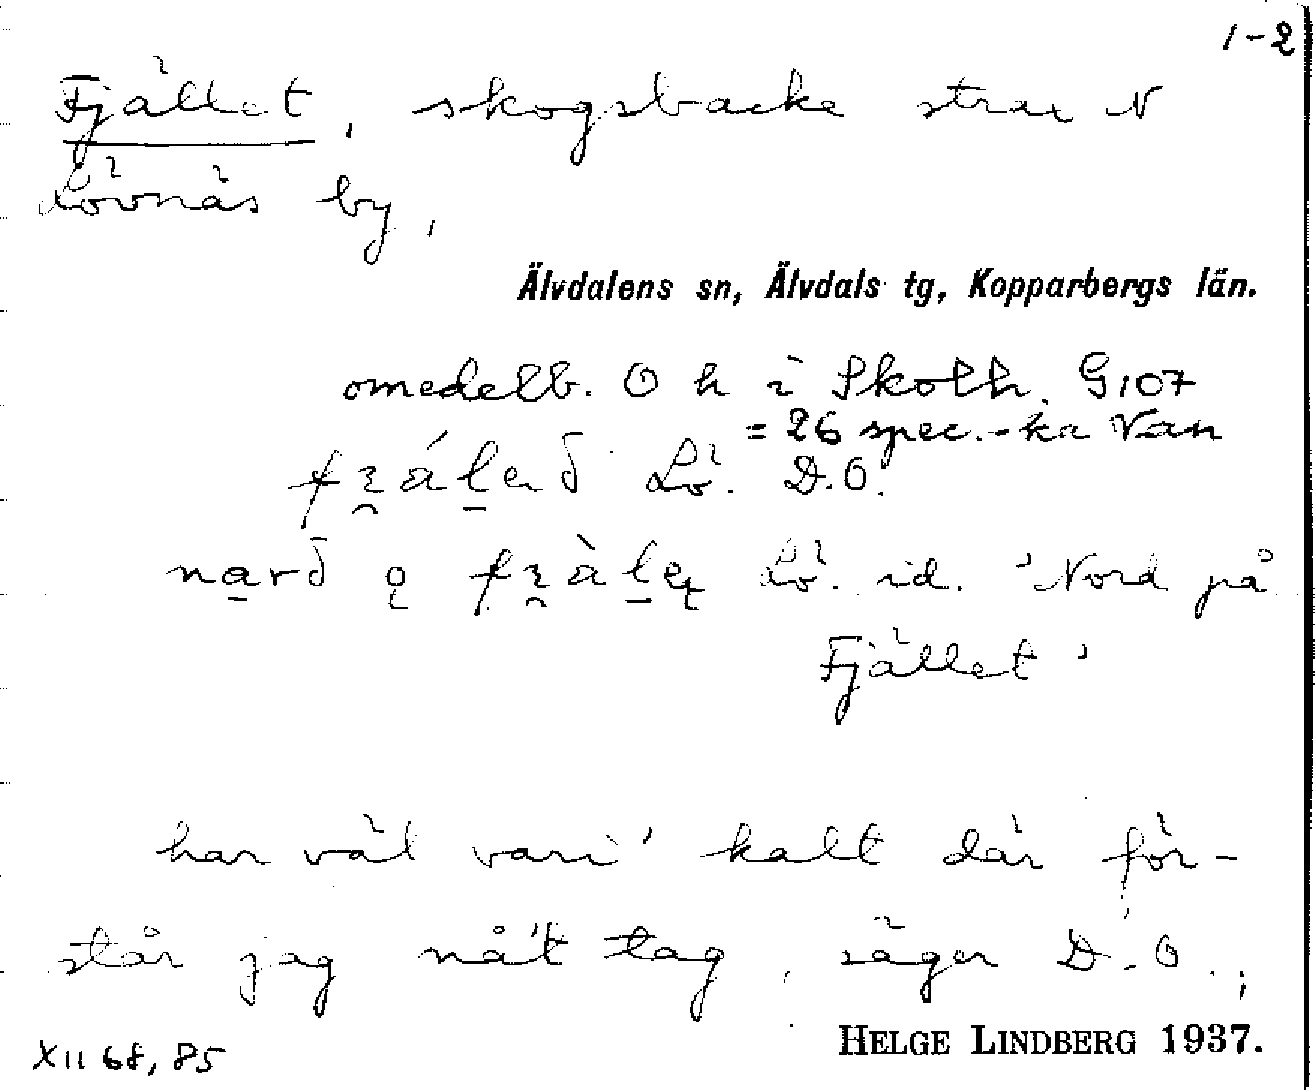 1-2
Fjället, skogsbacke strax N
Lövnäs by,
Älvdalens sn, Älvdals tg, Kopparbergs län.
omedelb. O h i Skolh. G107
= 26 spec.-ka Van
Lö. D.O.
Lö. id. 'Nord på
Fjället'
har väl vari' kalt där för-
står jag nå't tag, säger D.O.,
XII 68, 85
HELGE LINDBERG 1937.